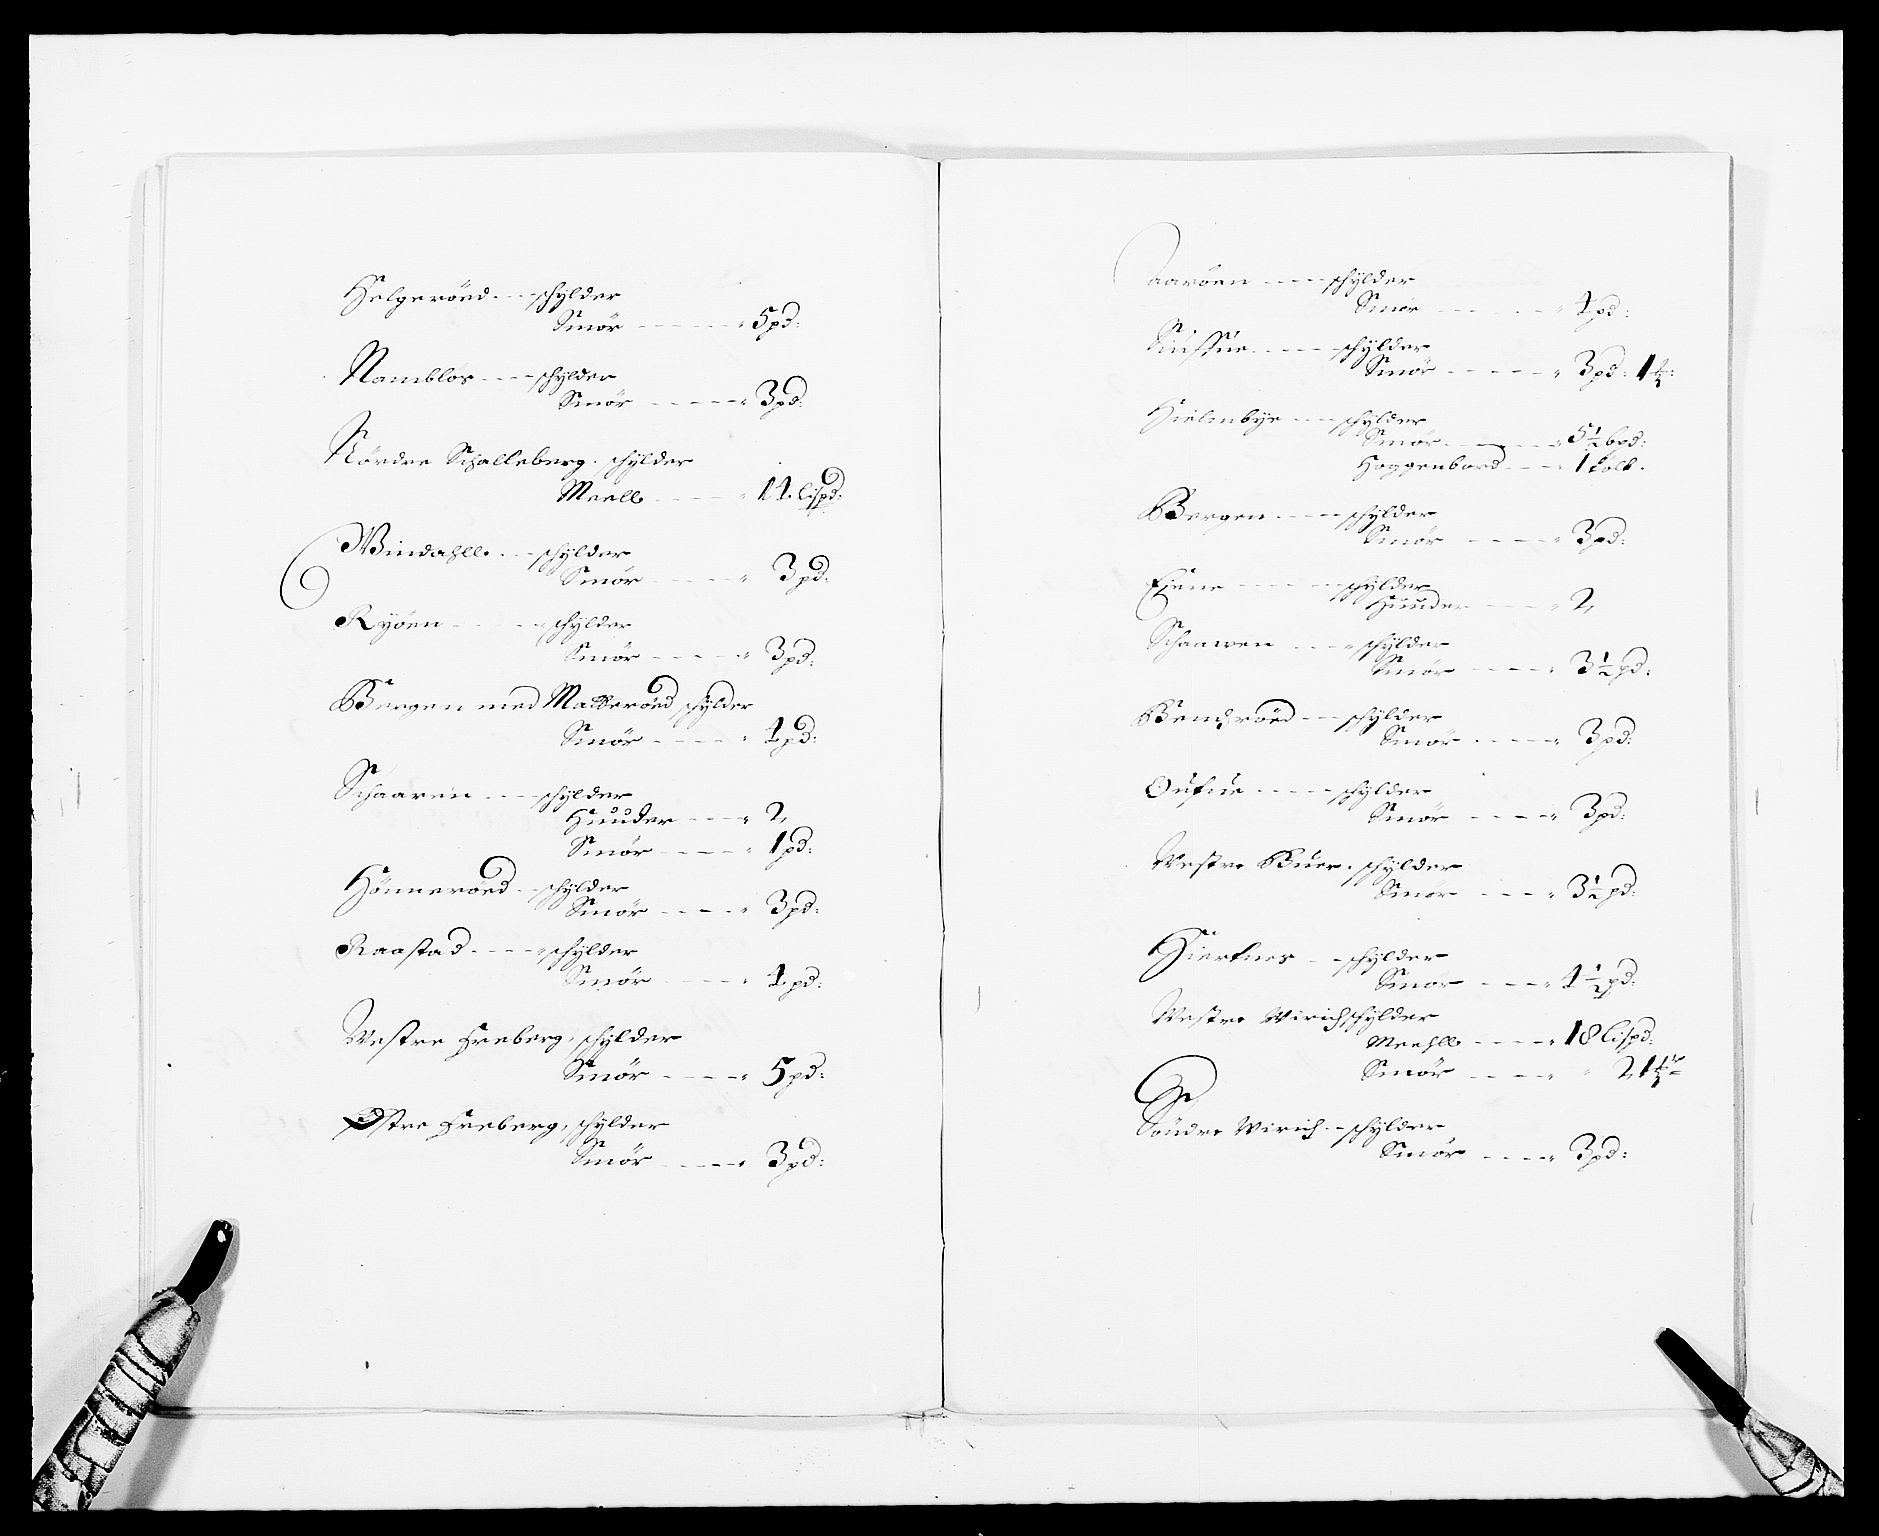 Helgeröed - - - schylder
Smör - - - - - - " 5 pd:
Namblos - - - - schylder
Smör - - - - - " 3 pd:
Nördre Schalleberg - schylder
Meell - - - - - " 14 lispd:
Windahll - - - schylder
Smör - - - - - " 3 pd:
Ryöen - - - - - " schylder
Smör - - - - - " 3 pd:
Bergen med Malkeröed schylder
Smör - - - - " 4 pd:
Schaaren - - - - schylder
Huuder - - - " 2,
Smör - - - - " 1 pd:
Hönneröed - - schylder
Smör - - - - " 3 pd:
Raastad - - - - " schylder
Smör - - - - " 4 pd:
Vestre Freberg, schylder
Smör - - - - " 5 pd:
Ostre Freberg, schylder
Smör - - - - " 3 pd:
Aaröen - - - - schylder
Smör - - - - - " 4 pd:
schylder
Smör - - - - - " 3 pd: 1
Hielmbye - - - schylder
Smör - - - - " 5 1/2 bpd:
Hoggenbord - - - " 1 tölt.
Bergen - - - - - schylder
Smör - - - - " 3 pd:
Eiene - - - - - - schylder
Huuder - - - - " 2,
Schaaven - - - " schylder
Smör - - - - " 3 1/2 pd:
schylder
Smör - - - - " 3 pd:
Oufue - - - - - schylder
Smör - - - - " 3 pd:
Vestre Buer - schylder
Smör - - - - " 3 1/2 pd:
Hiertnes - - schylder
Smör - - - - " 4 1/2 pd:
Vestre Wirich schylder
Meehll - - - - " 18 lispd:
Smör - - - - " " 2, 1
Söndre Wirich - - schylder
Smör - - - - " 3 pd: